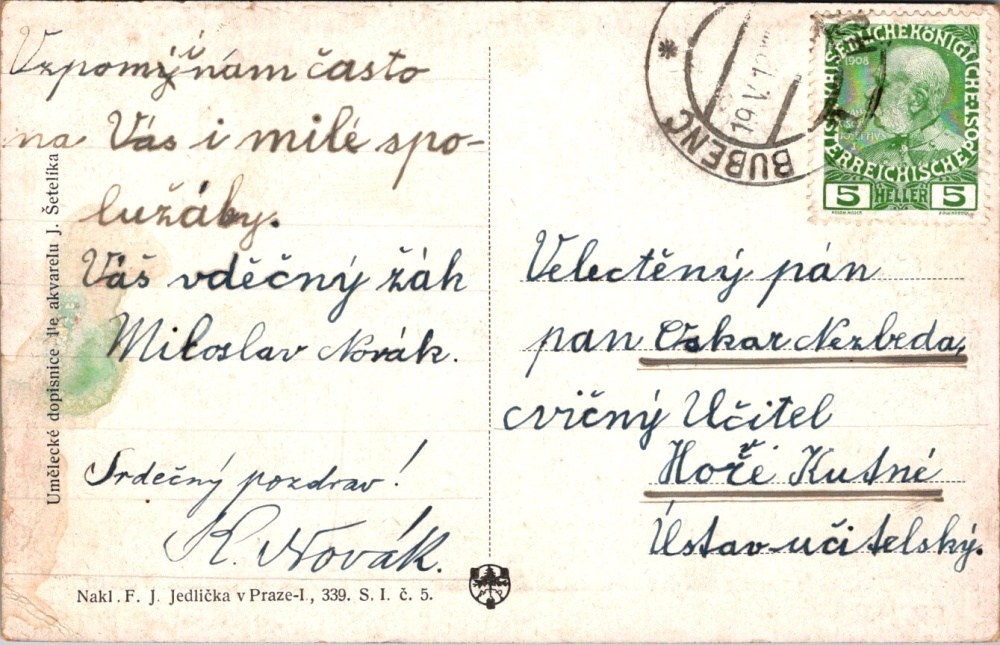 Vzpomýnám často
na Vás i milé spo-
lužáky.
Váš vděčný žák
Miloslav Novák.
Srdečný pozdrav!
K. Novák.
Nakl. F. J. Jedlička v Praze-I., 339. S. I. č. 5.
Umělecké dopisnice dle akvarelu J. Šetelíka
BUBENČ
19. V. 1
1908
5 HELLER 5
Velectěný pán
pan Oskar Nezbeda,
cvičný Učitel
Hoře Kutné
Ústav učitelský.